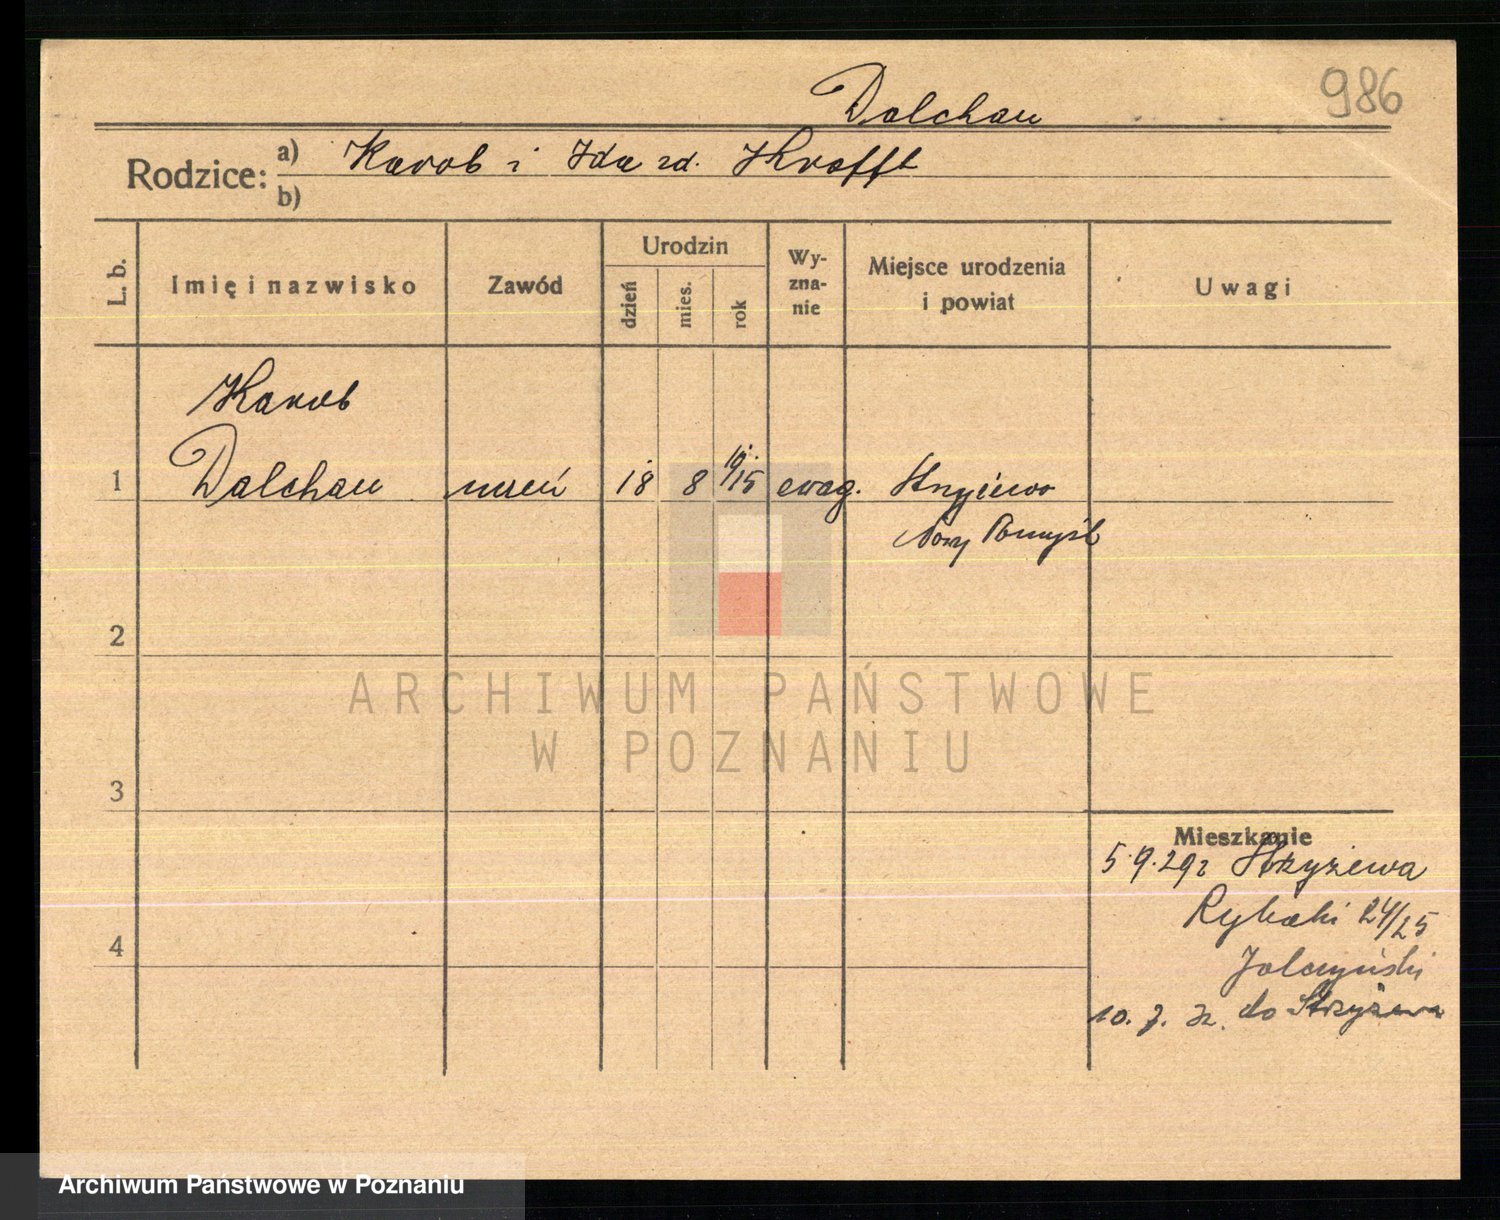 986
Dalchau
Rodzice: a) Karol i Ida zd. Krafft
b)
L. b. Imię i nazwisko Zawód Urodzin dzień mies. rok Wyznanie Miejsce urodzenia i powiat Uwagi
Karol
1 Dalchau uczeń 18 8 1915 ewag. Strzyżewo
Nowy Tomyśl
2
ARCHIWUM PAŃSTWOWE
W POZNANIU
3
Mieszkanie
5.9.29 z Strzyżewa
Rybaki 24/25
4
10. do Strzyżewa
Archiwum Państwowe w Poznaniu